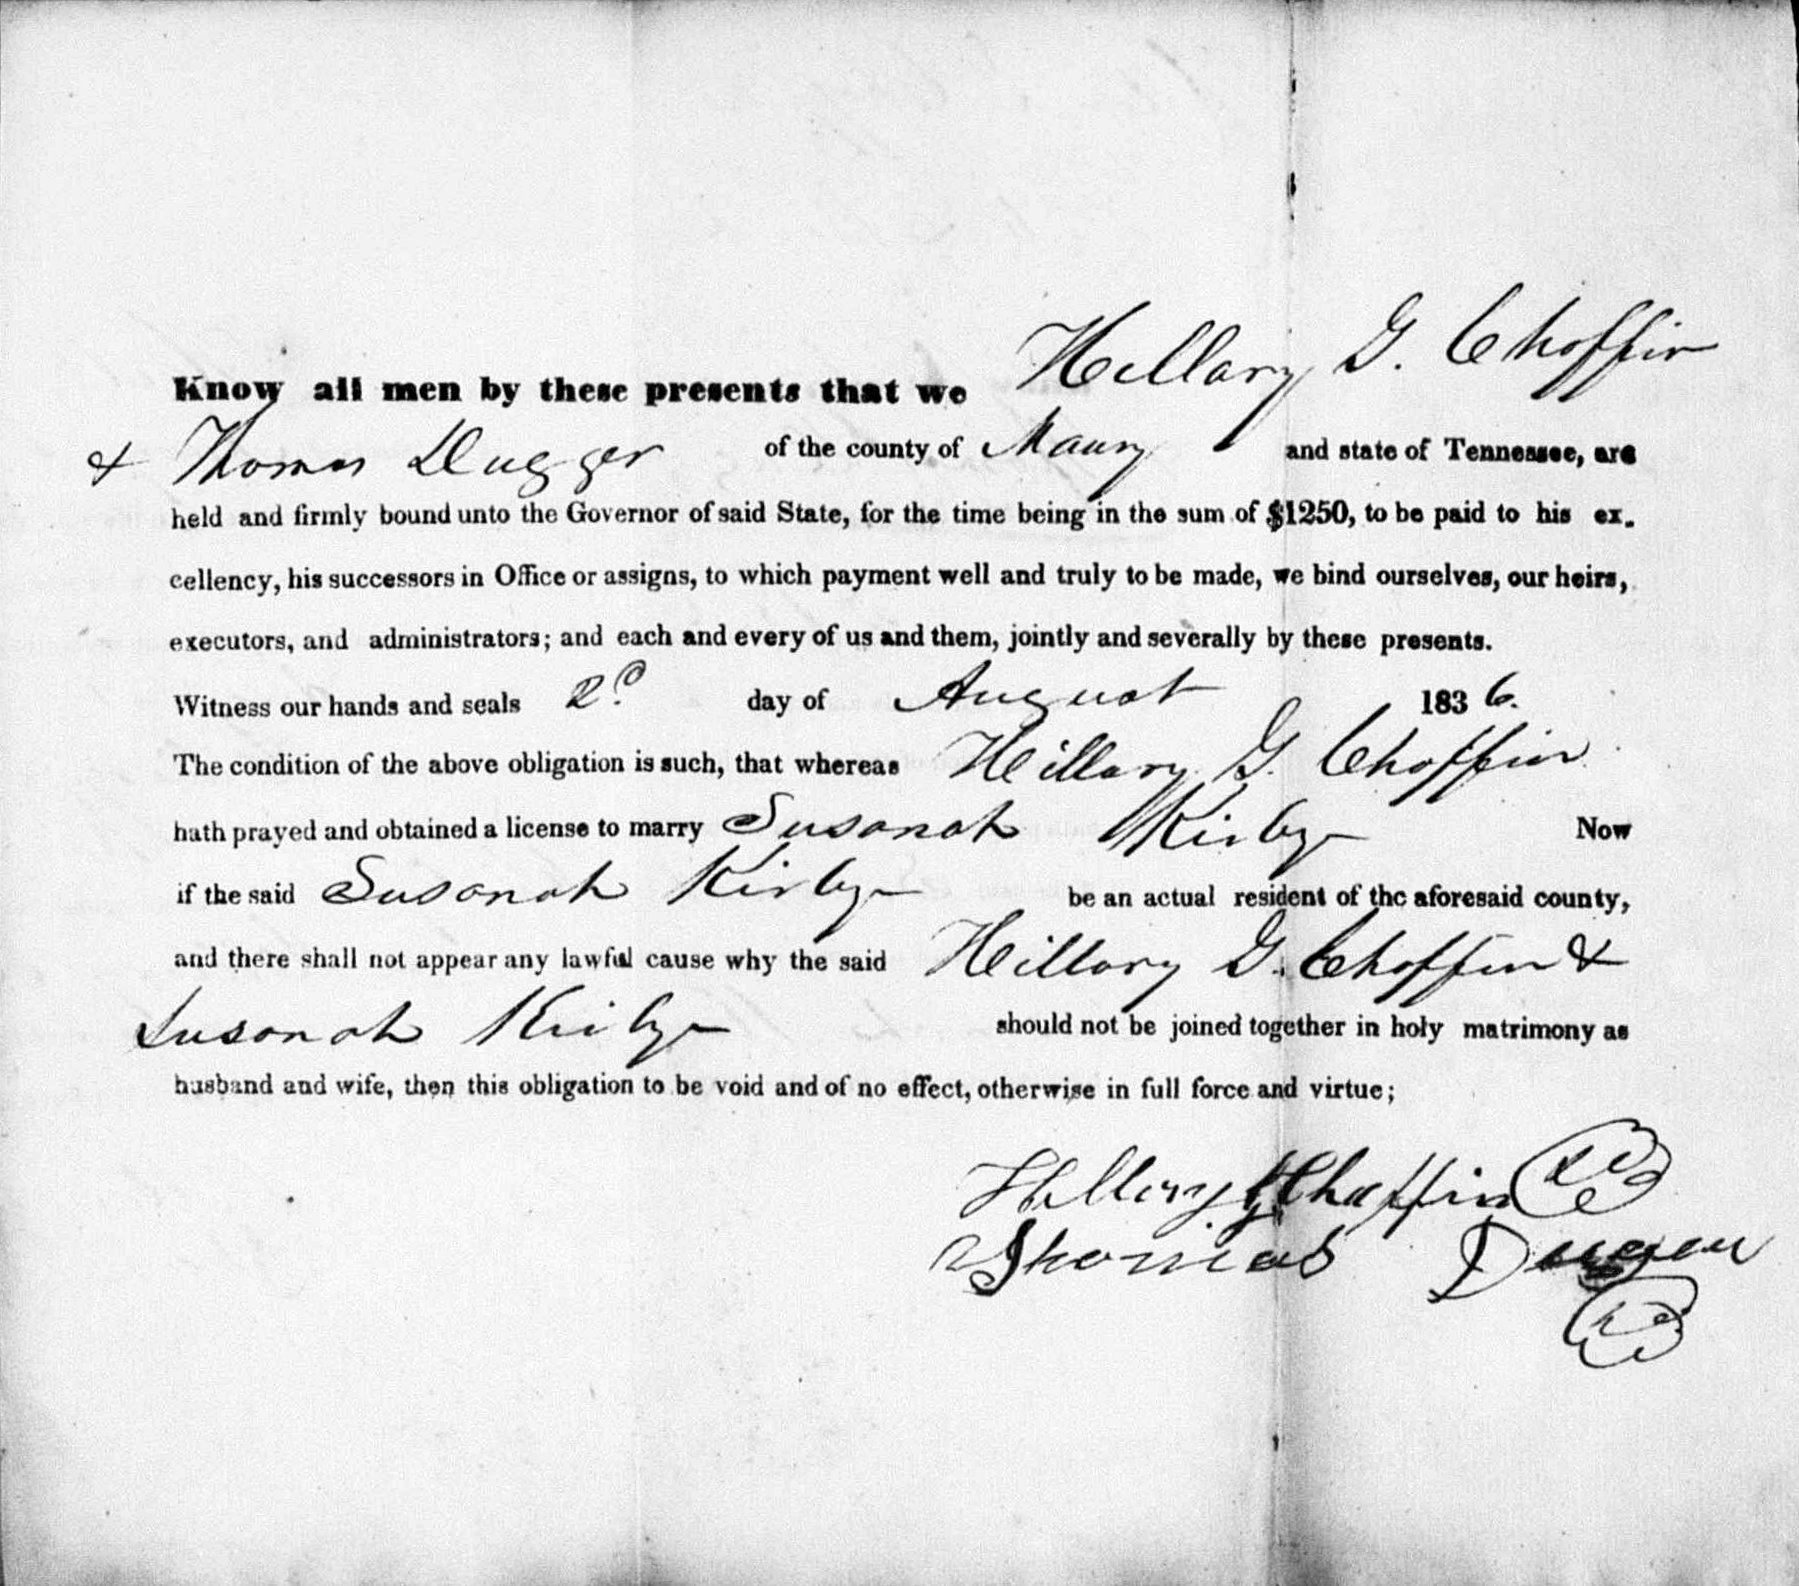 Know all men by these presents that we Hillary G. Choffin
& Thomas Dugger of the county of Maury and state of Tennessee, are
held and firmly bound unto the Governor of said State, for the time being in the sum of $1250, to be paid to his ex.
cellency, his successors in Office or assigns, to which payment well and truly to be made, we bind ourselves, our heirs,
executors, and administrators; and each and every of us and them, jointly and severally by these presents.
Witness our hands and seals 2d day of August 1836.
The condition of the above obligation is such, that whereas Hillary G. Choffin
hath prayed and obtained a license to marry Susanah Kirby Now
if the said Susanah Kirby be an actual resident of the aforesaid county,
and there shall not appear any lawful cause why the said Hillary G. Choffin &
Susanah Kirby should not be joined together in holy matrimony as
husband and wife, then this obligation to be void and of no effect, otherwise in full force and virtue;
Hillary G. Chaffin
Thomas Dugger